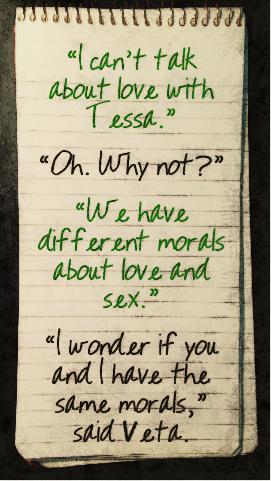 “I can’t talk
about love with
Tessa.”
“Oh. Why not?”
“We have
different morals
about love and
sex.”
“I wonder if you
and I have the
same morals,”
said Veta.